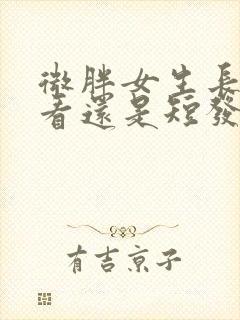 微胖女生長
看還是短發
有吉京子